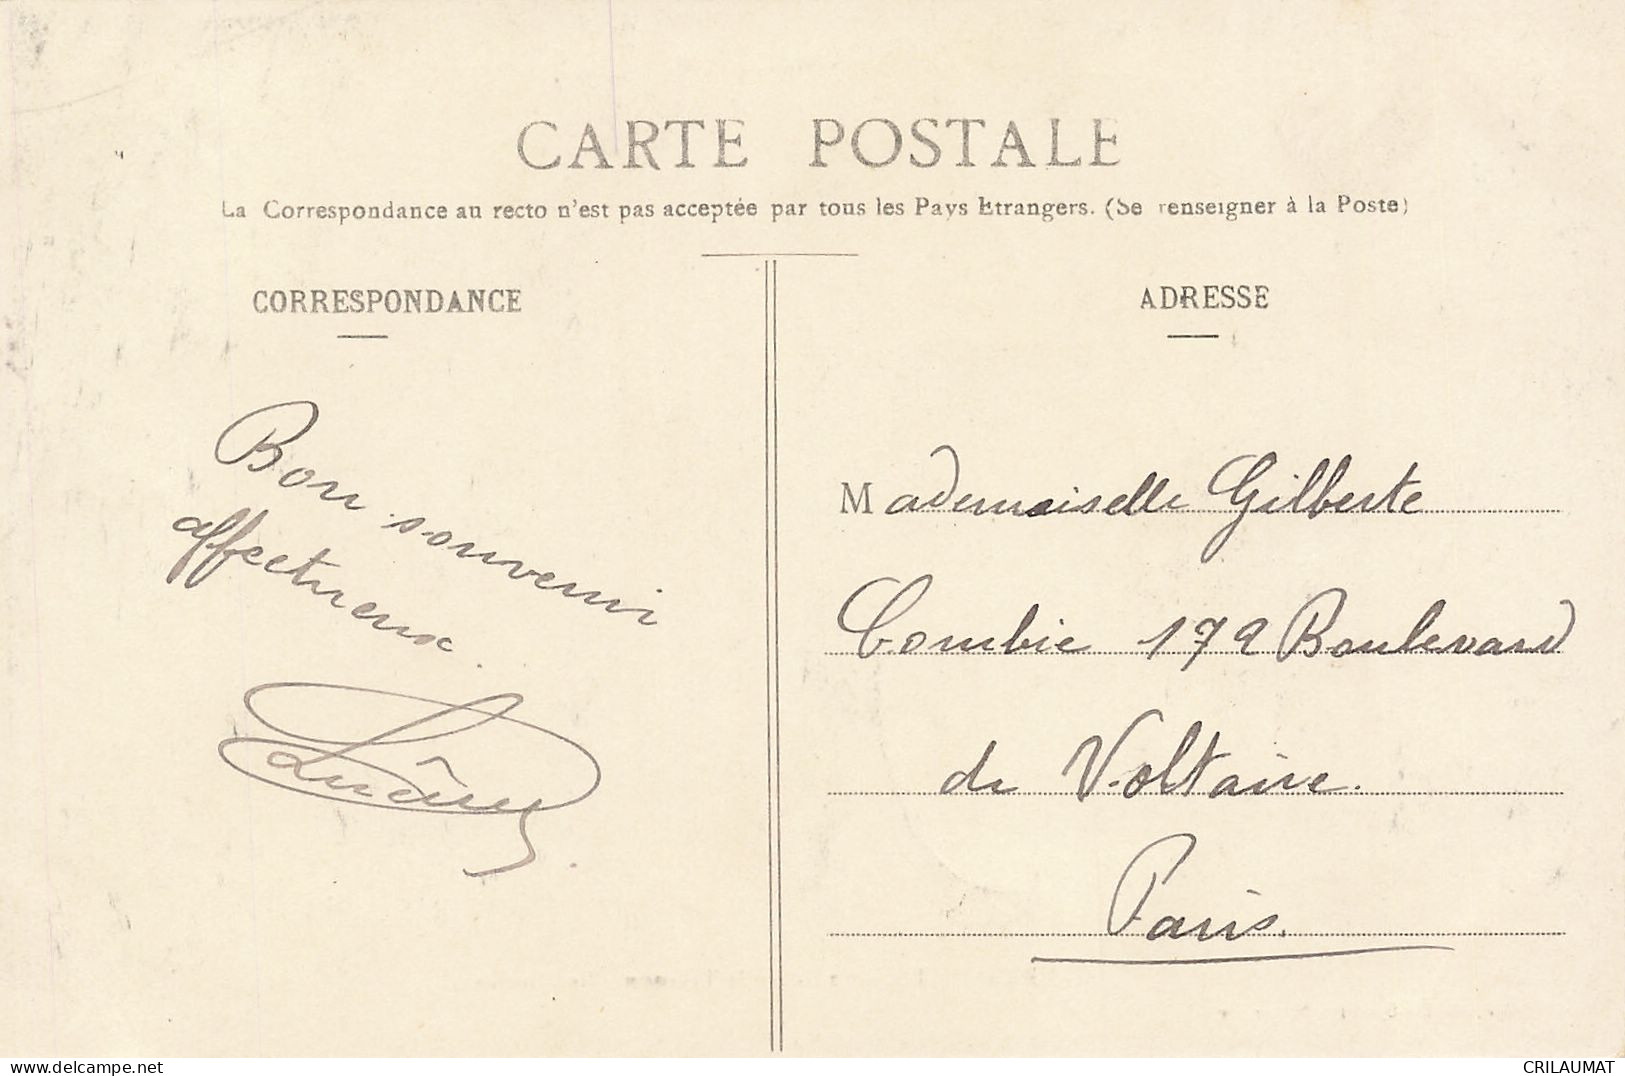 CARTE POSTALE
La Correspondance au recto n'est pas acceptée par tous les Pays Etrangers. (Se renseigner à la Poste)
CORRESPONDANCE
Bon souvenir
affectueux.
ADRESSE
Mademoiselle Gilberte
Combie 172 Boulevard
de Voltaire.
Paris.
delcampe.net
CRILAUMAT